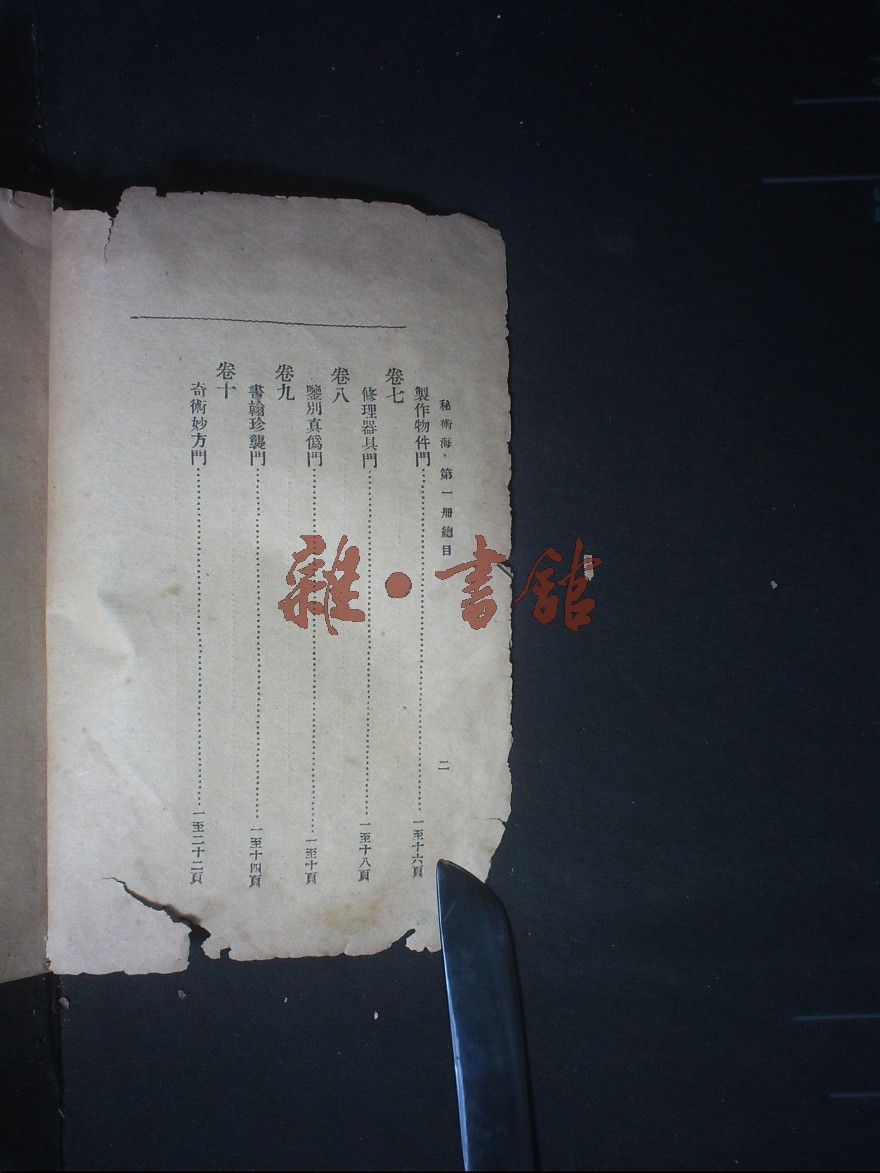 秘術海·第一册總目
二
卷七
製作物件門……一至十六頁
卷八
修理器具門……一至十八頁
卷九
鑒別真僞門……一至十頁
書翰珍襲門……一至十四頁
卷十
奇術妙方門……一至二十二頁
雜·書舘